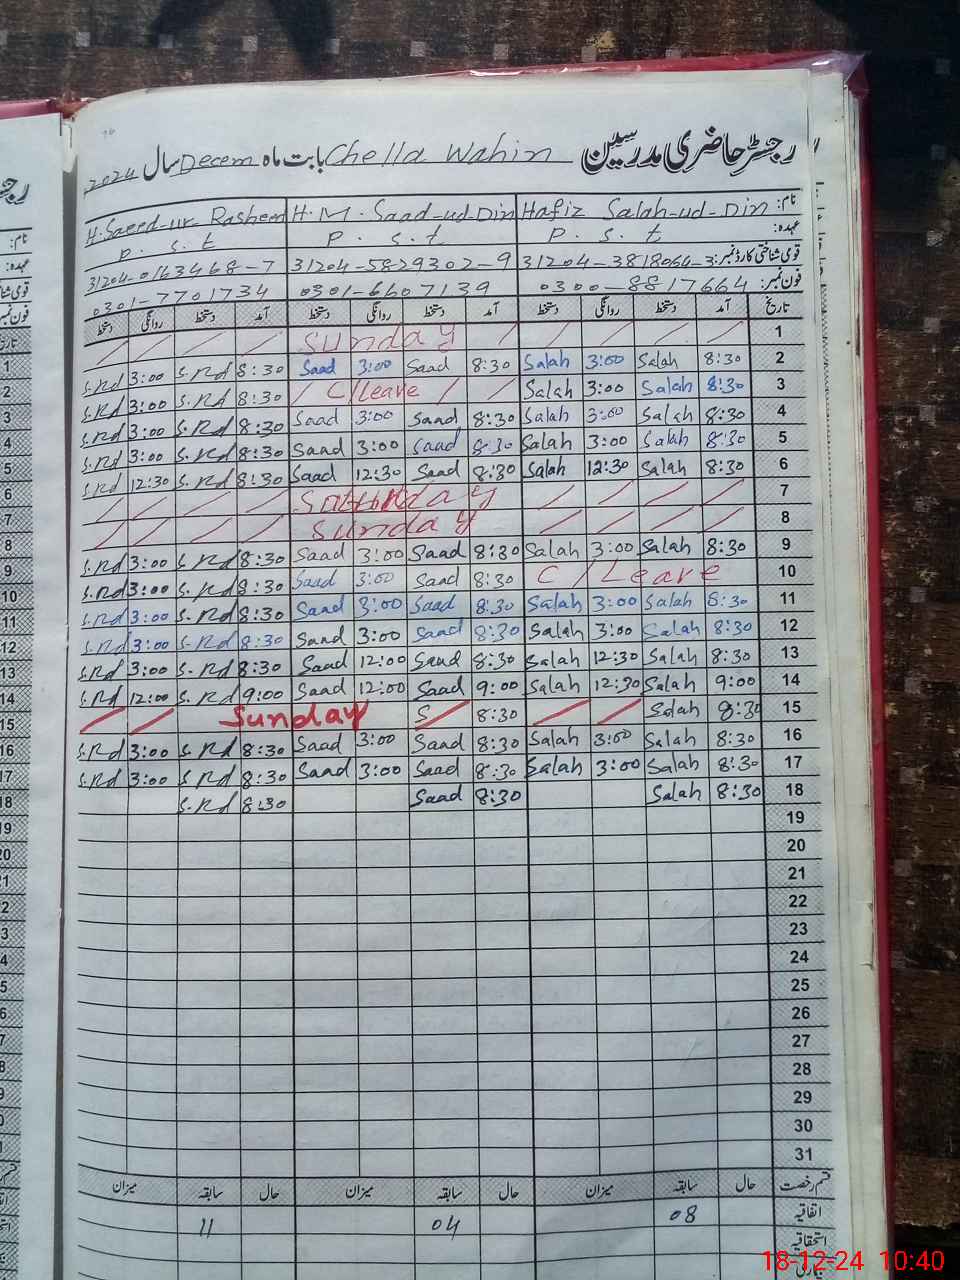 رجسٹر حاضری مدرسین Chella Wahin بابت ماہ Decem سال 2024
نام: Hafiz Salah-ud-Din H.M. Saad-ud-Din H.Saeed-ur Rasheed
عہدہ: P.s.t P.s.t P.s.t
قومی شناختی کارڈ نمبر: 31204-3818064-3 31204-5829302-9 31204-0163468-7
فون نمبر: 0300-8817664 0301-6607139 0301-7701734
تاریخ آمد دستخط روانگی دستخط آمد دستخط روانگی دستخط آمد دستخط روانگی دستخط
1 Sunday
2 8:30 Salah 3:00 Salah 8:30 Saad 3:00 Saad 8:30 S.Rd 3:00 S.Rd
3 8:30 Salah 3:00 Salah C/Leave 8:30 S.Rd 3:00 S.Rd
4 8:30 Salah 3:00 Salah 8:30 Saad 3:00 Saad 8:30 S.Rd 3:00 S.Rd
5 8:30 Salah 3:00 Salah 8:30 Saad 3:00 Saad 8:30 S.Rd 3:00 S.Rd
6 8:30 Salah 12:30 Salah 8:30 Saad 12:30 Saad 8:30 S.Rd 12:30 S.Rd
7
8 Sunday
9 8:30 Salah 3:00 Salah 8:30 Saad 3:00 Saad 8:30 S.Rd 3:00 S.Rd
10 C/Leave 8:30 Saad 3:00 Saad 8:30 S.Rd 3:00 S.Rd
11 8:30 Salah 3:00 Salah 8:30 Saad 3:00 Saad 8:30 S.Rd 3:00 S.Rd
12 8:30 Salah 3:00 Salah 8:30 Saad 3:00 Saad 8:30 S.Rd 3:00 S.Rd
13 8:30 Salah 12:30 Salah 8:30 Saad 12:00 Saad 8:30 S.Rd 3:00 S.Rd
14 9:00 Salah 12:30 Salah 9:00 Saad 12:00 Saad 9:00 S.Rd 12:00 S.Rd
15 8:30 Salah 8:30 S Sunday
16 8:30 Salah 3:00 Salah 8:30 Saad 3:00 Saad 8:30 S.Rd 3:00 S.Rd
17 8:30 Salah 3:00 Salah 8:30 Saad 3:00 Saad 8:30 S.Rd 3:00 S.Rd
18 8:30 Salah 8:30 Saad 8:30 S.Rd
19
20
21
22
23
24
25
26
27
28
29
30
31
قسم رخصت حال سابقہ میزان حال سابقہ میزان حال سابقہ میزان
اتفاقیہ 08 04 11
استحقاقیہ
18-12-24 10:40